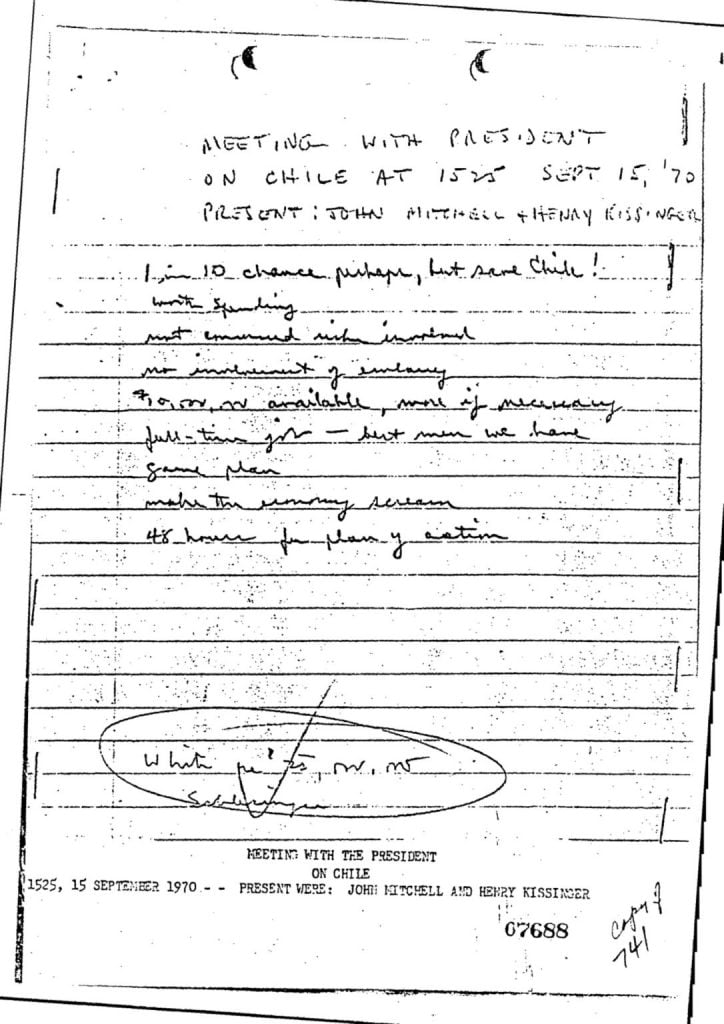 MEETING WITH PRESIDENT
ON CHILE AT 1525 SEPT 15, '70
PRESENT: JOHN MITCHELL + HENRY KISSINGER
1 in 10 chance perhaps, but save Chile!
worth spending
not concerned risks involved
no involvement of embassy
$10,000,000 available, more if necessary
full-time job — best men we have
game plan
make the economy scream
48 hours for plan of action
White
MEETING WITH THE PRESIDENT
ON CHILE
1525, 15 SEPTEMBER 1970 - - PRESENT WERE: JOHN MITCHELL AND HENRY KISSINGER
07688
copy of
741